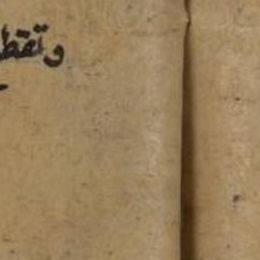 وتقط